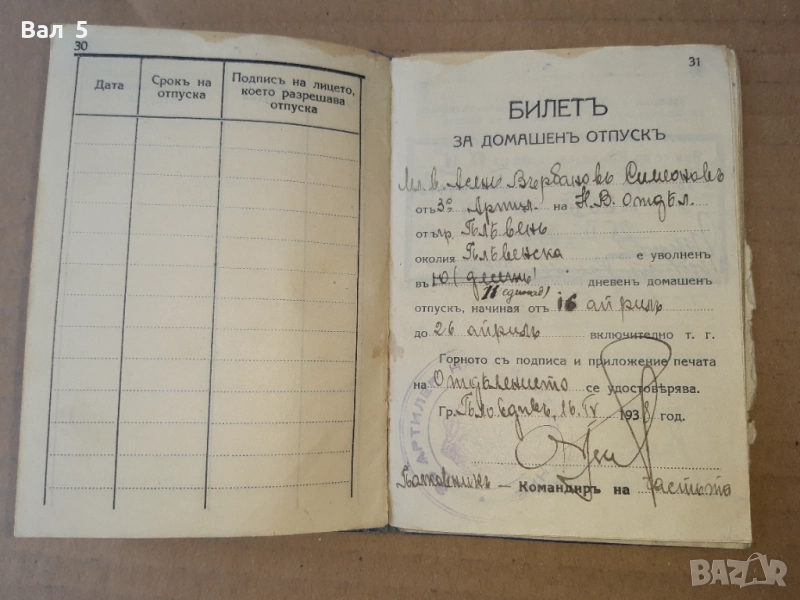 Вал 5
30
Дата
Срокъ на отпуска
Подписъ на лицето, което разрешава отпуска
31
БИЛЕТЪ
ЗА ДОМАШЕНЪ ОТПУСКЪ
Асенъ Върбановъ Симеоновъ
отъ 3° Артил. на Н.В. Отдѣл.
отъ гр. Плѣвенъ
околия Плѣвенска е уволненъ
въ 10 (десеть) дневенъ домашенъ
11 (единай)
отпускъ, начиная отъ 16 априлъ
до 26 априлъ включително т. г.
Горното съ подписа и приложение печата
на Отдѣлението се удостовѣрява.
Гр. Пловдивъ, 16. IV 1938 год.
АРТИЛЕР
Полковникъ — Командиръ на частьта
BAZAR